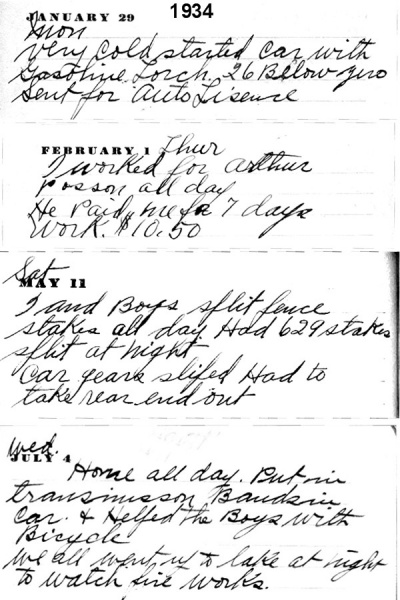 1934
JANUARY 29
Mon
Very Cold, started Car with
Gasoline Torch, 26 Below zero
Sent for Auto Lisence
FEBRUARY 1 Thur
I worked for Arthur
Posson all day
He Paid me for 7 days
Work. $10.50
Sat
MAY 11
I and Boys split fence
stakes all day. Had 629 stakes
split at night
Car gears slifed Had to
take rear end out
Wed.
JULY 4
Home all day. Put in
transmisson Bands in
Car. & Helped the Boys with
Bicycle
We all went up to lake at night
to watch fire works.